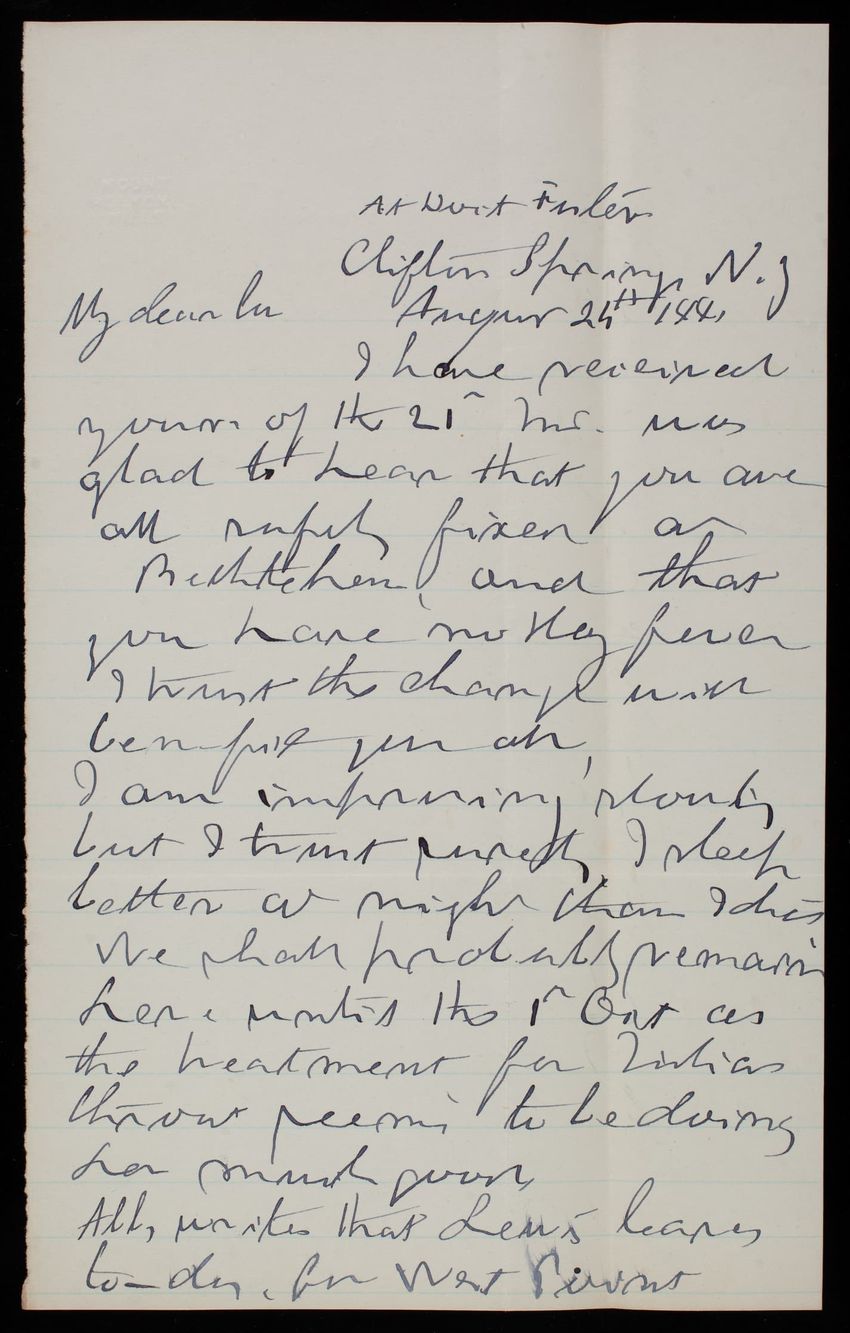 Clifton Springs N.Y
My dear Lu
August 24th 188
I have received
yours of the 21st Inst. was
glad to hear that you are
all safely fixed at
Bethlehem, and that
you have no Hay fever
I trust the change will
benefit you all,
I am improving slowly
but I trust surely, I sleep
better at night than I did
We shall probably remain
here until the 1st Oct as
the treatment for Julias
throat seems to be doing
her much good
Ally writes that Lewis leaves
to-day, for West Point